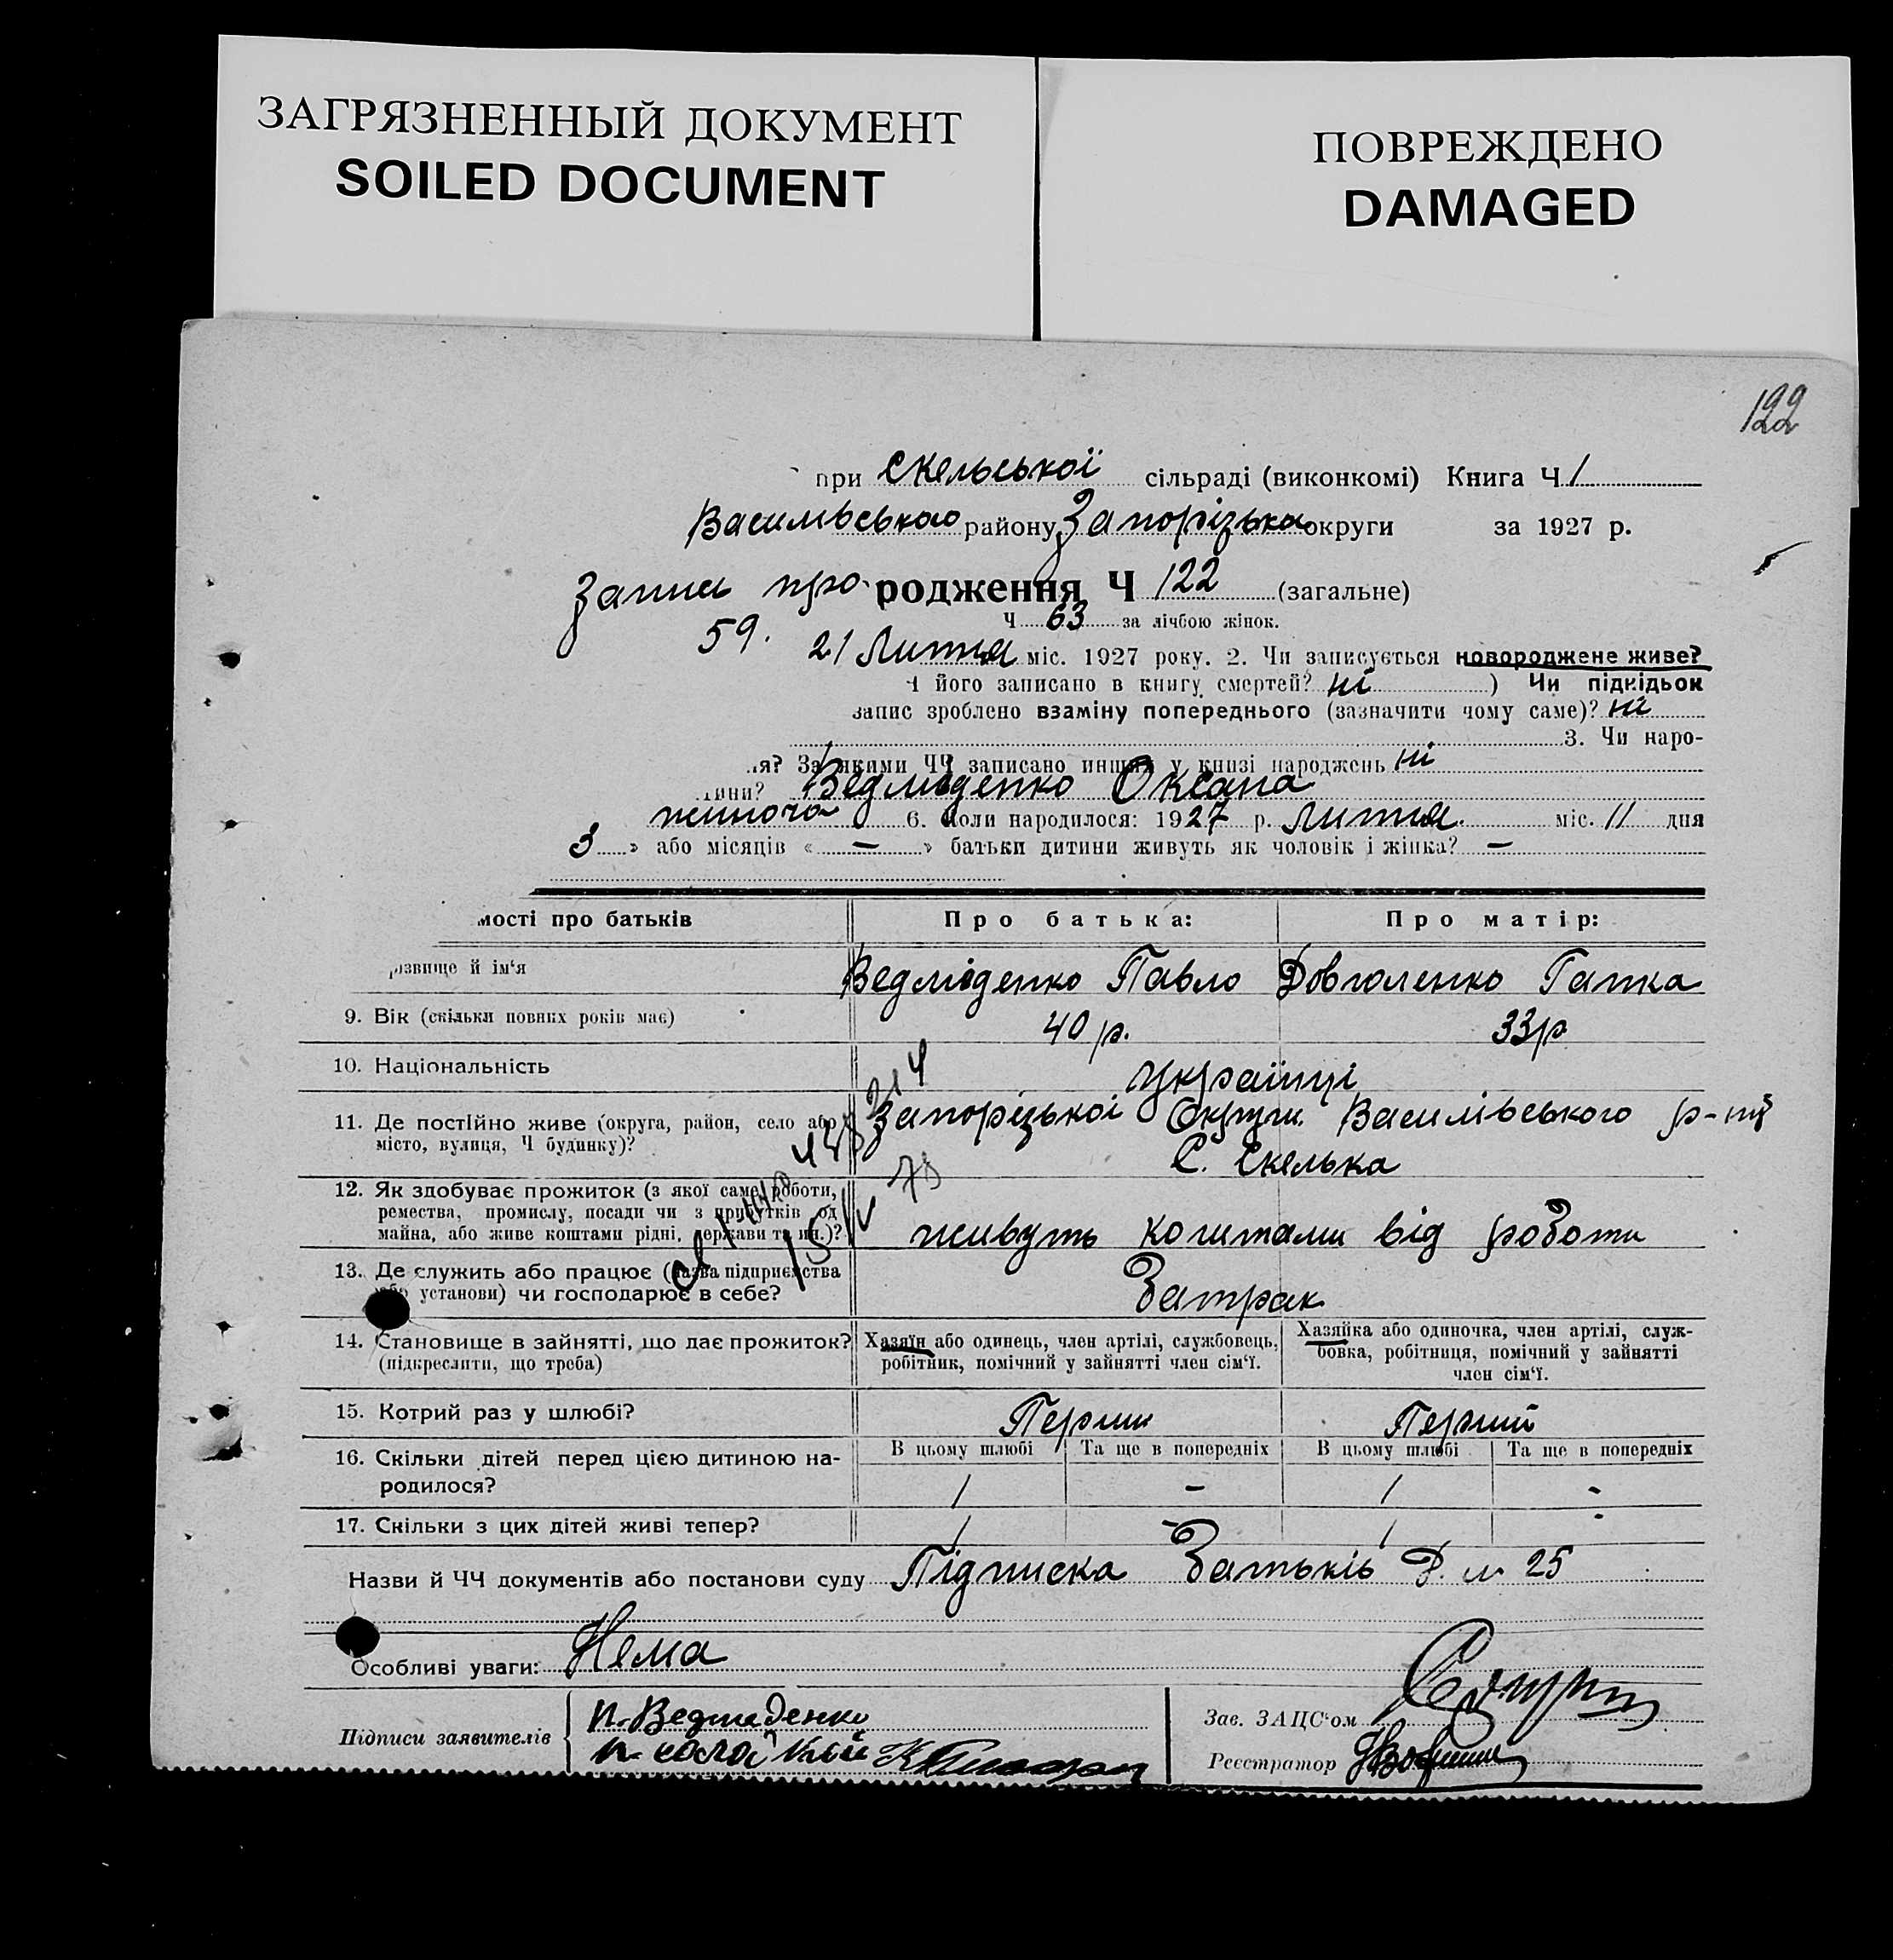 ЗАГРЯЗНЕННЫЙ ДОКУМЕНТ
SOILED DOCUMENT
ПОВРЕЖДЕНО
DAMAGED
122
при Скельської сільраді (виконкомі) Книга Ч 1
Василівського району Запорізька округи за 1927 р.
Запис про родження Ч 122 (загальне)
Ч 63 за лічбою жінок.
59. 21 Лютня міс. 1927 року. 2. Чи записується новороджене живе?
його записано в книгу смертей? ні ) Чи підкідьок
запис зроблено взаміну попереднього (зазначити чому саме)? ні
3. Чи наро-
ня? За якими ЧЧ записано инших у книзі народжень ні
Ведміденко Оксана
жиноча 6. Коли народилося: 1927 р. Лютня. міс. 11 дня
3 » або місяців « — » батьки дитини живуть як чоловік і жінка? —
мості про батьків Про батька: Про матір:
різвище й ім‘я Ведміденко Павло Довголенко Гапка
9. Вік (скільки повних років має) 40 р. 33 р
10. Національність Українці
11. Де постійно живе (округа, район, село або місто, вулиця, Ч будинку)? Запорізької Округи Василівського р-ну
С. Скелька
12. Як здобуває прожиток (з якої саме роботи,
ремества, промислу, посади чи з прибутків од
майна, або живе коштами рідні, держави та ин.)? живуть коштами від роботи
13. Де служить або працює (назва підприємства
або установи) чи господарює в себе? Батрак
14. Становище в зайнятті, що дає прожиток?
(підкреслити, що треба)
Хазяїн або одинець, член артілі, службовець,
робітник, помічний у зайнятті член сім‘ї.
Хазяйка або одиночка, член артілі, служ-
бовка, робітниця, помічний у зайнятті
член сім‘ї.
15. Котрий раз у шлюбі? Перши Перший
В цьому шлюбі Та ще в попередніх В цьому шлюбі Та ще в попередніх
16. Скільки дітей перед цією дитиною на-
родилося? 1 - 1 -
17. Скільки з цих дітей живі тепер? 1 - 1 -
Назви й ЧЧ документів або постанови суду Підписка Батьків
Особливі уваги: Нема
Підписи заявителів
П. Ведмеденко
Зав. ЗАЦС‘ом
Реєстратор